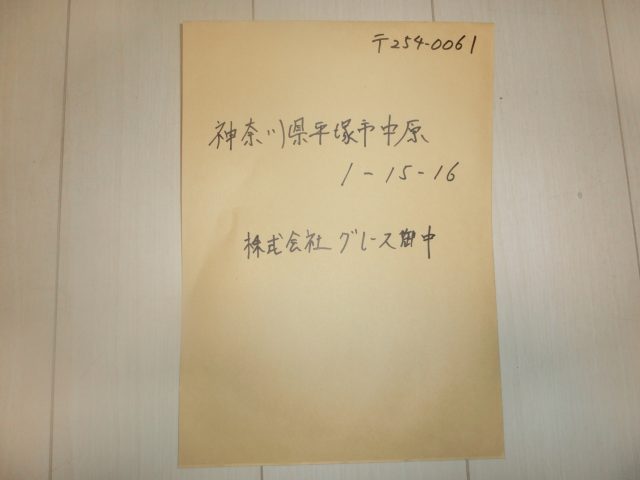 〒254-0061
神奈川県平塚市中原
1-15-16
株式会社グレース御中